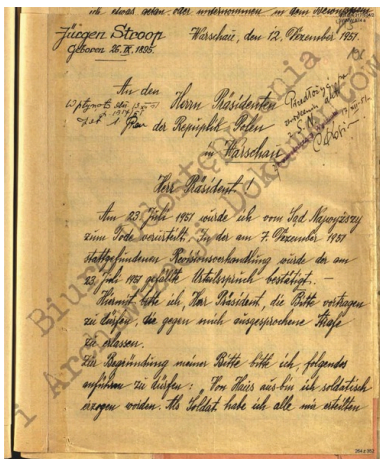 ich etwas getan, oder unternommen in dem
Jürgen Stroop Warschau, den 12. Dezember 1951.
geboren 26. IX. 1895.
An den
Herrn Präsidenten
der Republik Polen
in Warschau
Herr Präsident!
Am 23. Juli 1951 wurde ich vom Sąd Najwyższy
zum Tode verurteilt. In der am 7. Dezember 1951
stattgefundenen Revisionsverhandlung wurde der am
23. Juli 1951 gefällte Urteilsspruch bestätigt. –
Hiermit bitte ich, Herr Präsident, die Bitte vortragen
zu dürfen, die gegen mich ausgesprochene Strafe
zu erlassen.
Zur Begründung meiner Bitte bitte ich, folgendes
anführen zu dürfen: "Von Haus aus bin ich soldatisch
erzogen worden. Als Soldat habe ich alle mir erteilten